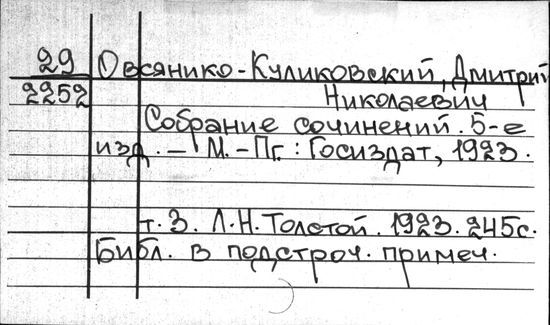 29 Овсянико-Куликовский, Дмитрий
2252 Николаевич
Собрание сочинений. 5-е
изд. — М.-Пг.: Госиздат, 1923.
т. 3. Л.Н. Толстой. 1923. 245с.
Библ. в подстроч. примеч.